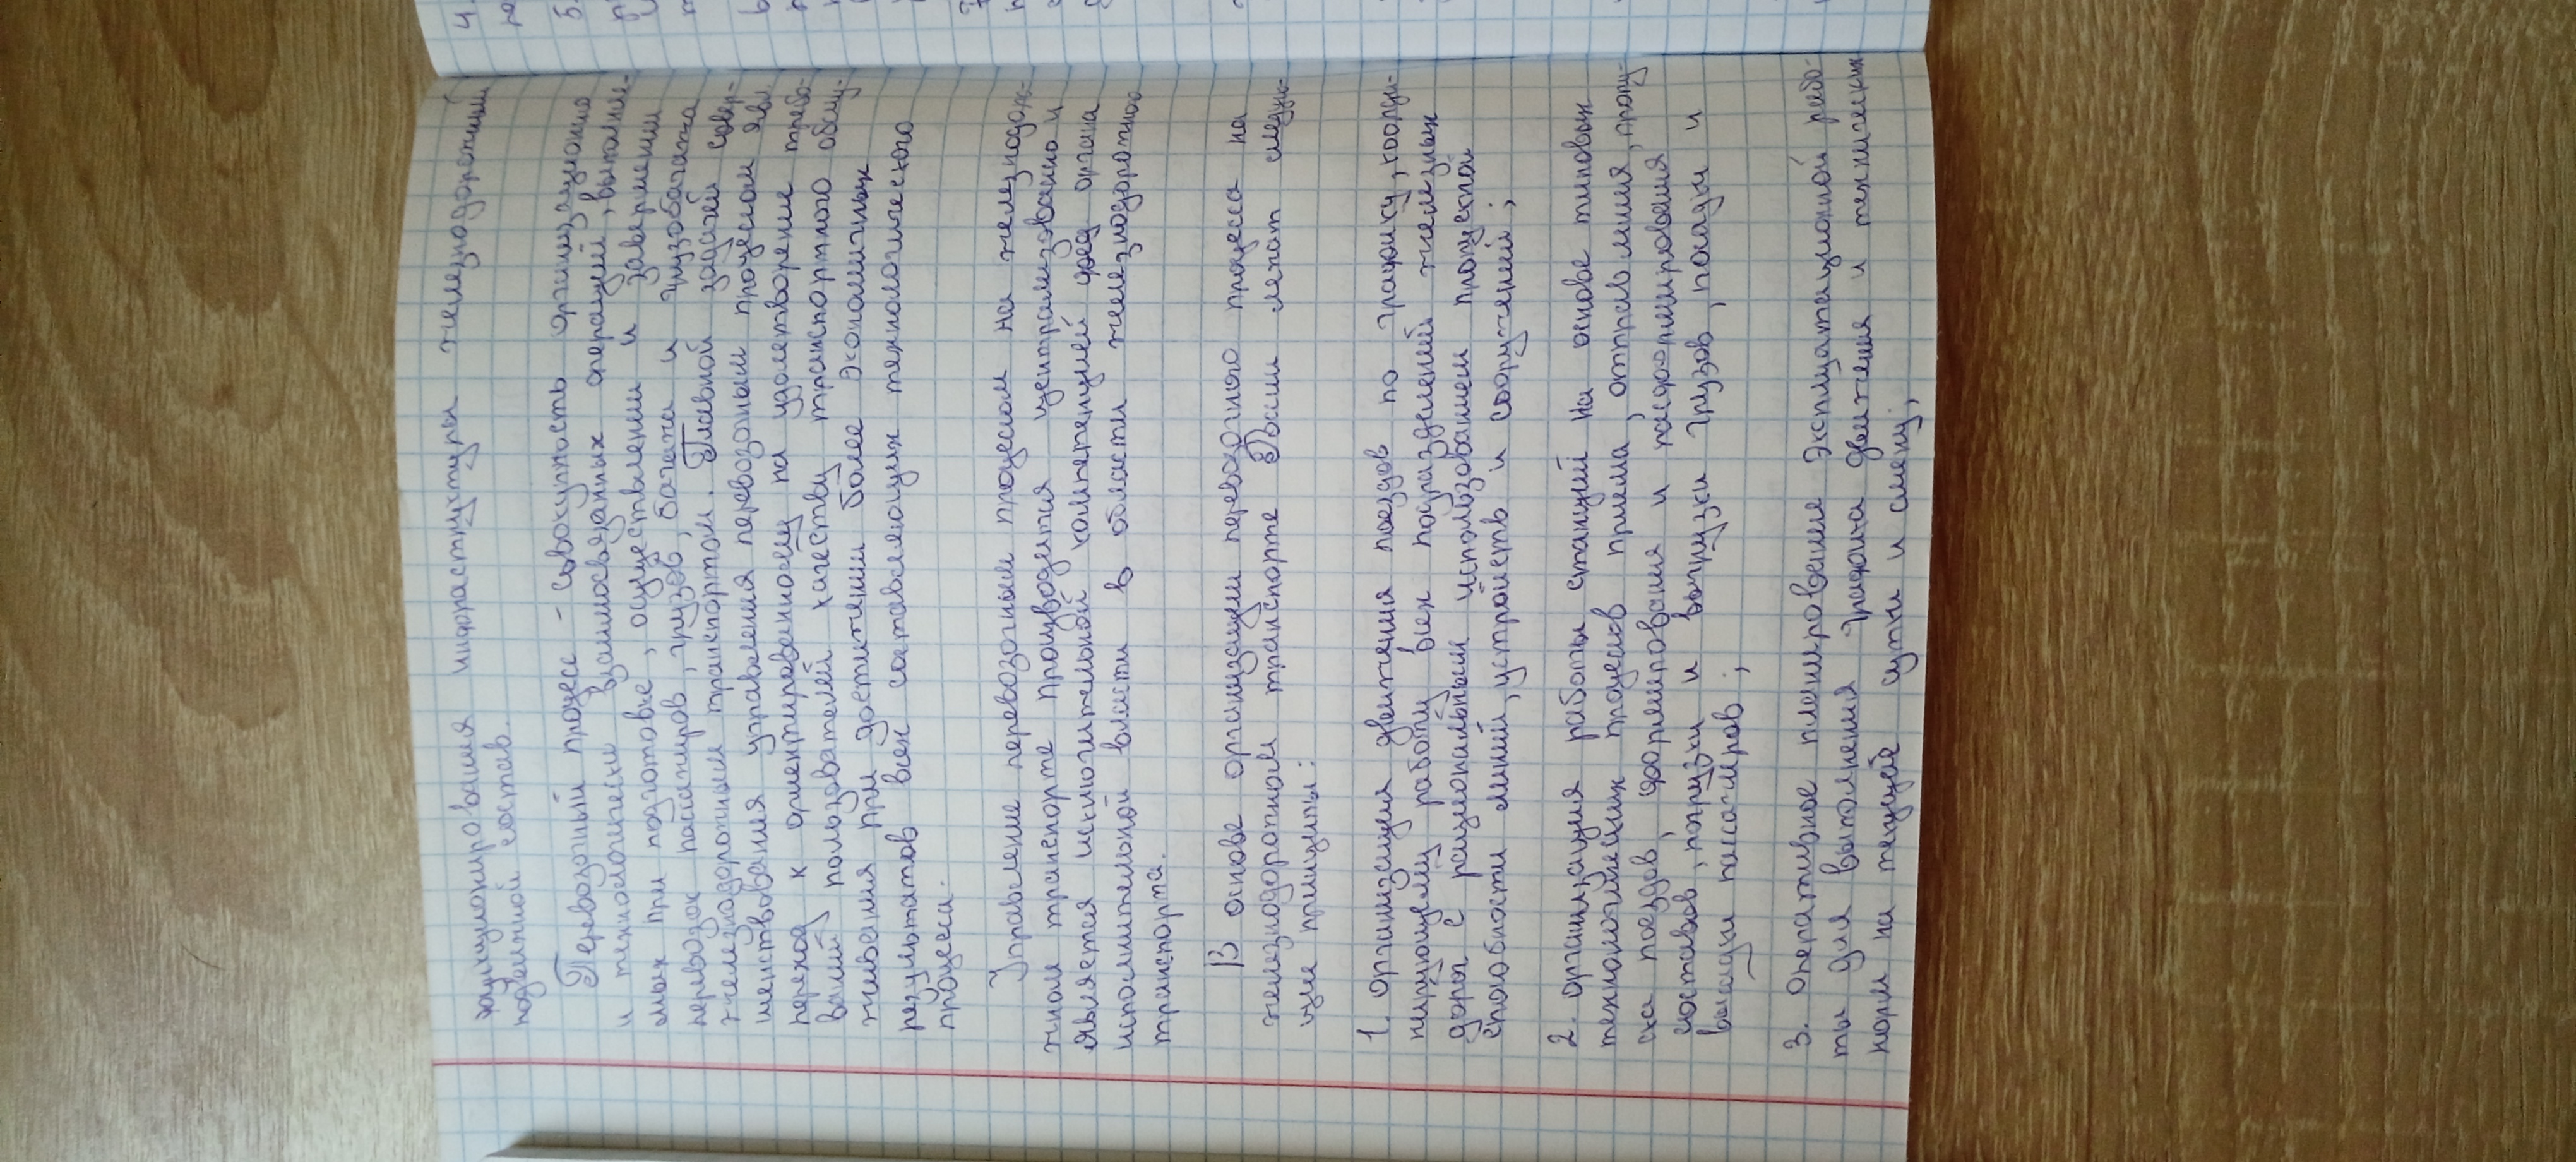 функционирования инфраструктуры железнодорожный
подвижной состав.
Перевозочный процесс - совокупность организационно
и технологически взаимосвязанных операций, выполняе-
мых при подготовке, осуществлении и завершении
перевозок пассажиров, грузов, багажа и грузобагажа
железнодорожным транспортом. Главной задачей совер-
шенствования управления перевозочным процессом явл.
переход к ориентированному на удовлетворение требо-
ваний пользователей качеству транспортного обслу-
живания при достижении более экономичных
результатов всех составляющих технологического
процесса.
Управление перевозочным процессом на железнодорож-
ном транспорте производится централизованно и
является исключительной компетенцией фед. органа
исполнительной власти в области железнодорожного
транспорта.
В основе организации перевозочного процесса на
железнодорожном транспорте Рвсии лежат следую-
щие принципы:
1. организация движения поездов по графику, коорди-
нирующему работу всех подразделений железных
дорог с рациональным использованием пропускной
способности линий, устройств и сооружений;
2. организация работы станций на основе типовых
технологических процессов приема, отправления, пропу-
ска поездов, формирования и расформирования
составов, погрузки и выгрузки грузов, посадки и
высадки пассажиров;
3. оперативное планирование эксплуатационной рабо-
ты для выполнения графика движения и технических
норм на текущие сутки и смену;
4.
5.